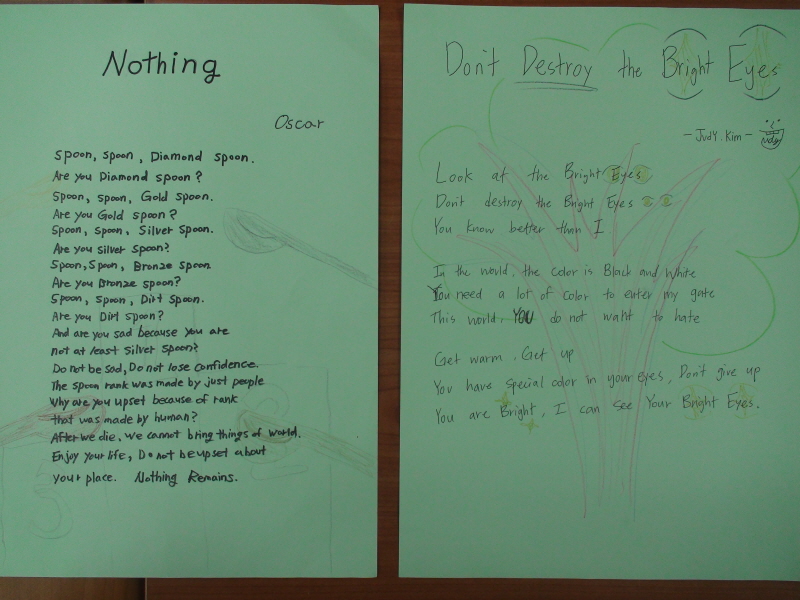 Nothing
Oscar
Spoon, spoon, Diamond spoon.
Are you Diamond spoon?
Spoon, spoon, Gold spoon.
Are you Gold spoon?
Spoon, spoon, Silver spoon.
Are you Silver spoon?
Spoon, Spoon, Bronze spoon
Are you Bronze spoon?
Spoon, spoon, Dirt spoon.
Are you Dirt spoon?
And are you sad because you are
not at least silver spoon?
Do not be sad, Do not lose confidence.
The spoon rank was made by just people
Why are you upset because of rank
that was made by human?
After we die, we cannot bring things of world.
Enjoy your life, Do not be upset about
your place. Nothing Remains.
Don't Destroy the Bright Eyes
- Judy. Kim -
Look at the Bright Eyes
Don't destroy the Bright Eyes
You know better than I.
In the world, the color is Black and White
You need a lot of color to enter my gate
This world, YOU do not want to hate
Get warm, Get up
You have special color in your eyes, Don't give up
You are Bright, I can see Your Bright Eyes.